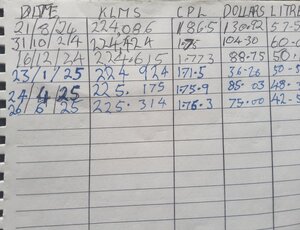 DATE KLMS CPL DOLLARS LITRE
21/8/24 224,086 186.5 130.82 57-5
31/10/24 224,424 1.75 104-30 60-
16/12/24 224.615 1.773 88-75 50.
23/1/25 224 924 171.5 36-26 50-
24/4/25 225.175 175.9 85-03 48-
26/6/25 225.314 176.3 75-00 42-5